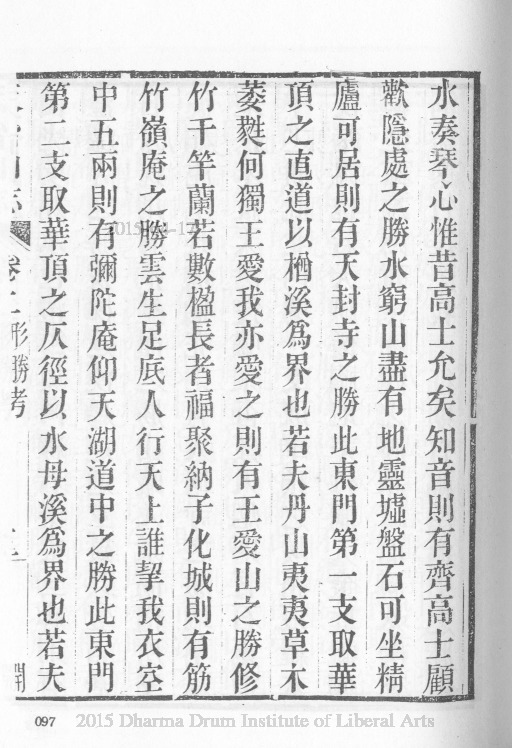 水奏琴心惟昔高士允矣知音則有齊高士顧
歡隱處之勝水窮山盡有地靈墟盤石可坐精
廬可居則有天封寺之勝此東門第一支取華
頂之直道以楢溪爲界也若夫丹山夷夷草木
菱蕤何獨王愛我亦愛之則有王愛山之勝修
竹千竿蘭若數楹長者福聚納子化城則有筋
竹嶺庵之勝雲生足底人行天上誰挈我衣空
中五兩則有彌陀庵仰天湖道中之勝此東門
第二支取華頂之仄徑以水母溪爲界也若夫
卷二形勝考
097
2015 Dharma Drum Institute of Liberal Arts